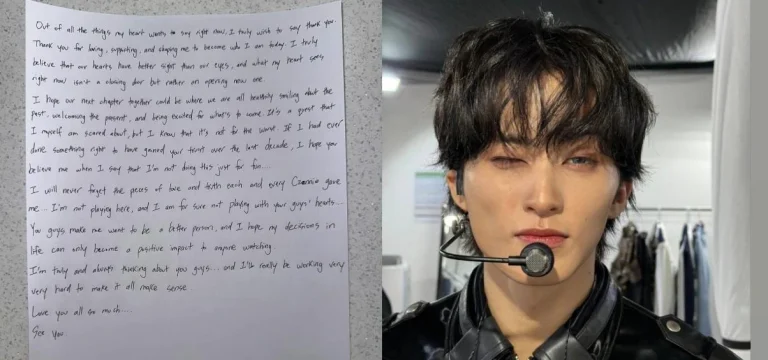 Out of all the things my heart wants to say right now, I truly wish to say thank you.
Thank you for loving, supporting, and shaping me to become who I am today. I truly
believe that our hearts have better sight than our eyes, and what my heart sees
right now isn't a closing door but rather an opening new one.
I hope our next chapter together could be where we are all healthily smiling about the
past, welcoming the present, and being excited for what's to come. It's a quest that
I myself am scared about, but I know that it's not for the worst. If I had ever
done something right to have gained your trust over the last decade, I hope you
believe me when I say that I'm not doing this just for fun...
I will never forget the pieces of love and faith each and every gave
me... I'm not playing here, and I am for sure not playing with your guys' hearts...
You guys make me want to be a better person, and I hope my decisions in
life can only become a positive impact to anyone watching.
I'm truly and always thinking about you guys... and I'll really be working very
very hard to make it all make sense.
Love you all so much...
See you.